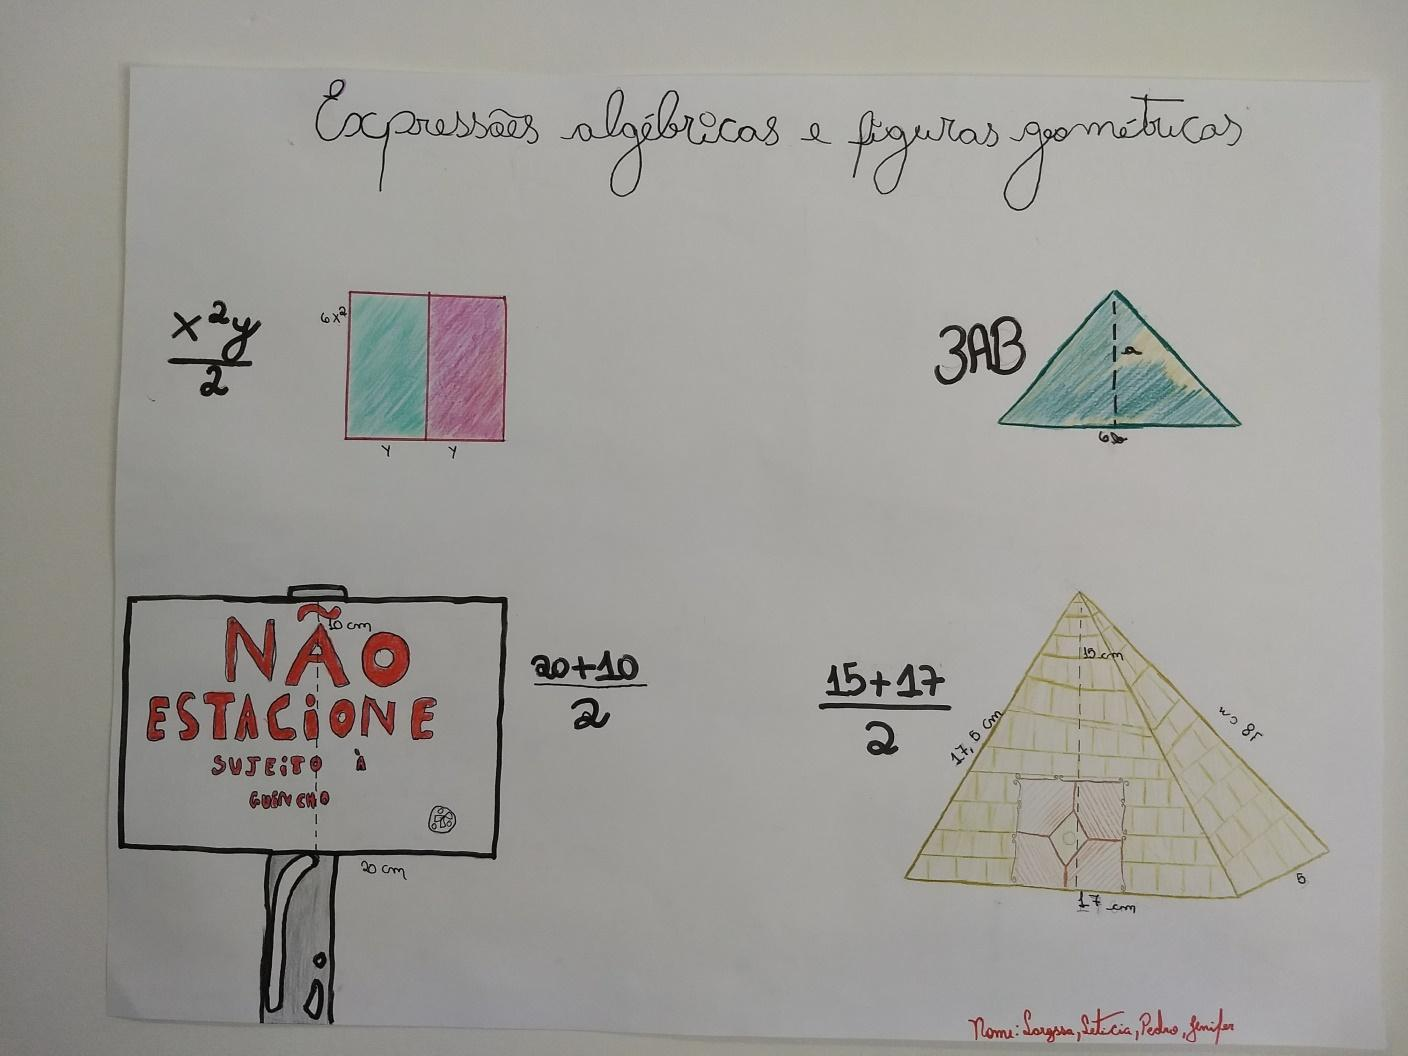 Expressões algébricas e figuras geométricas
x²y
2
6x²
y y
3AB
a
6b
NÃO
10 cm
ESTACIONE
SUJEITO À
GUINCHO
20 cm
20+10
2
15+17
2
15 cm
17,5 cm
18 cm
5
17 cm
Nome: Laryssa, Letícia, Pedro, Jenifer